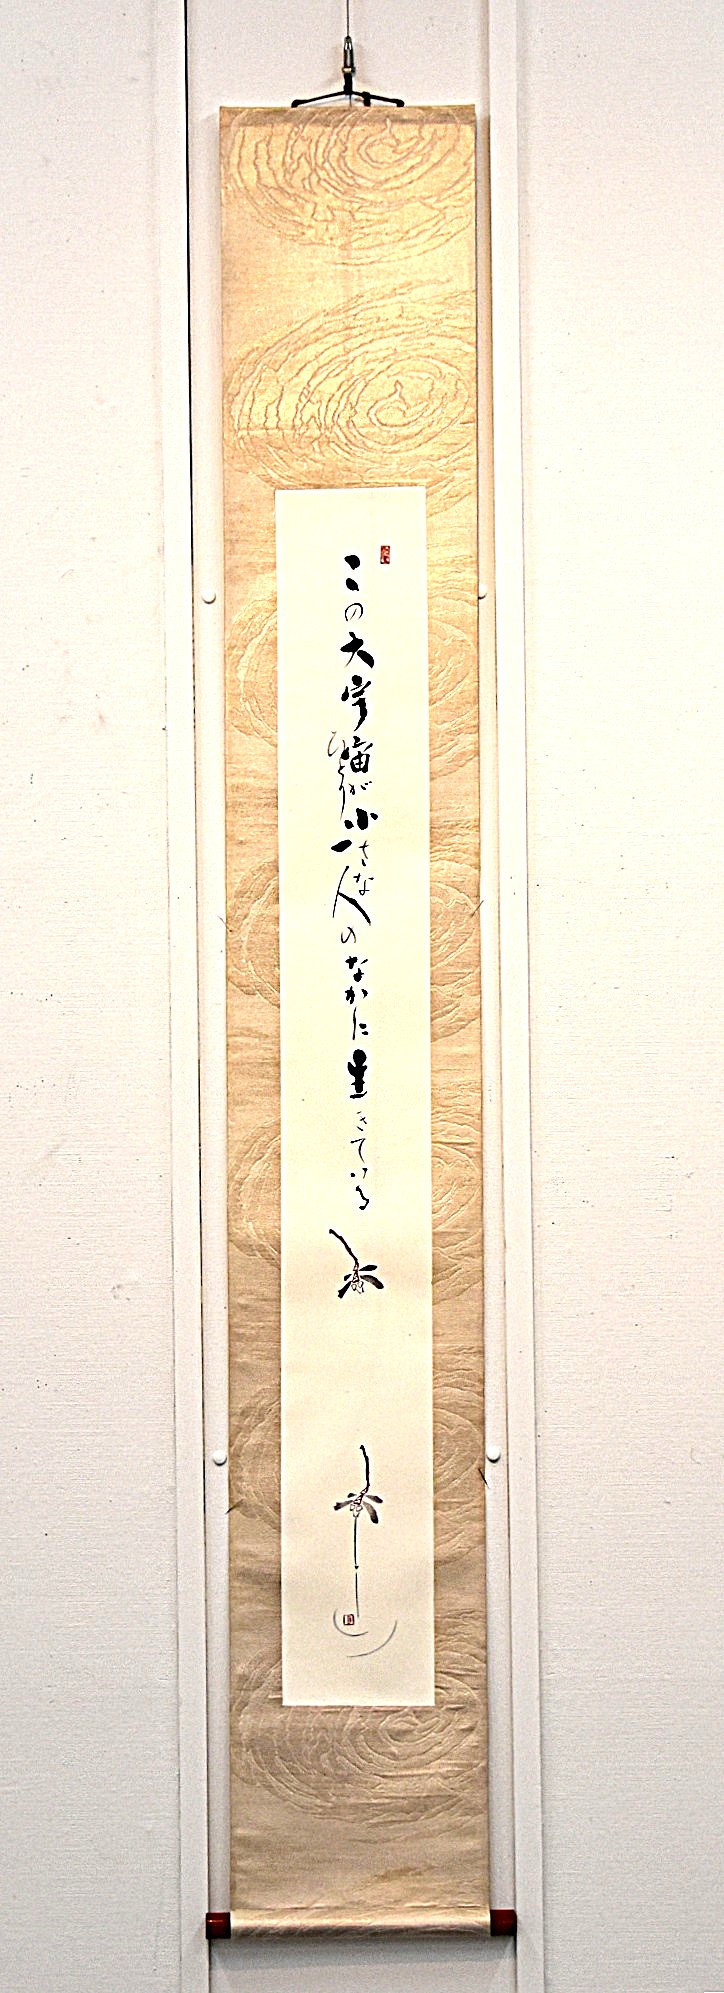 この大宇宙が小さな
ひとり
一人のなかに生きている